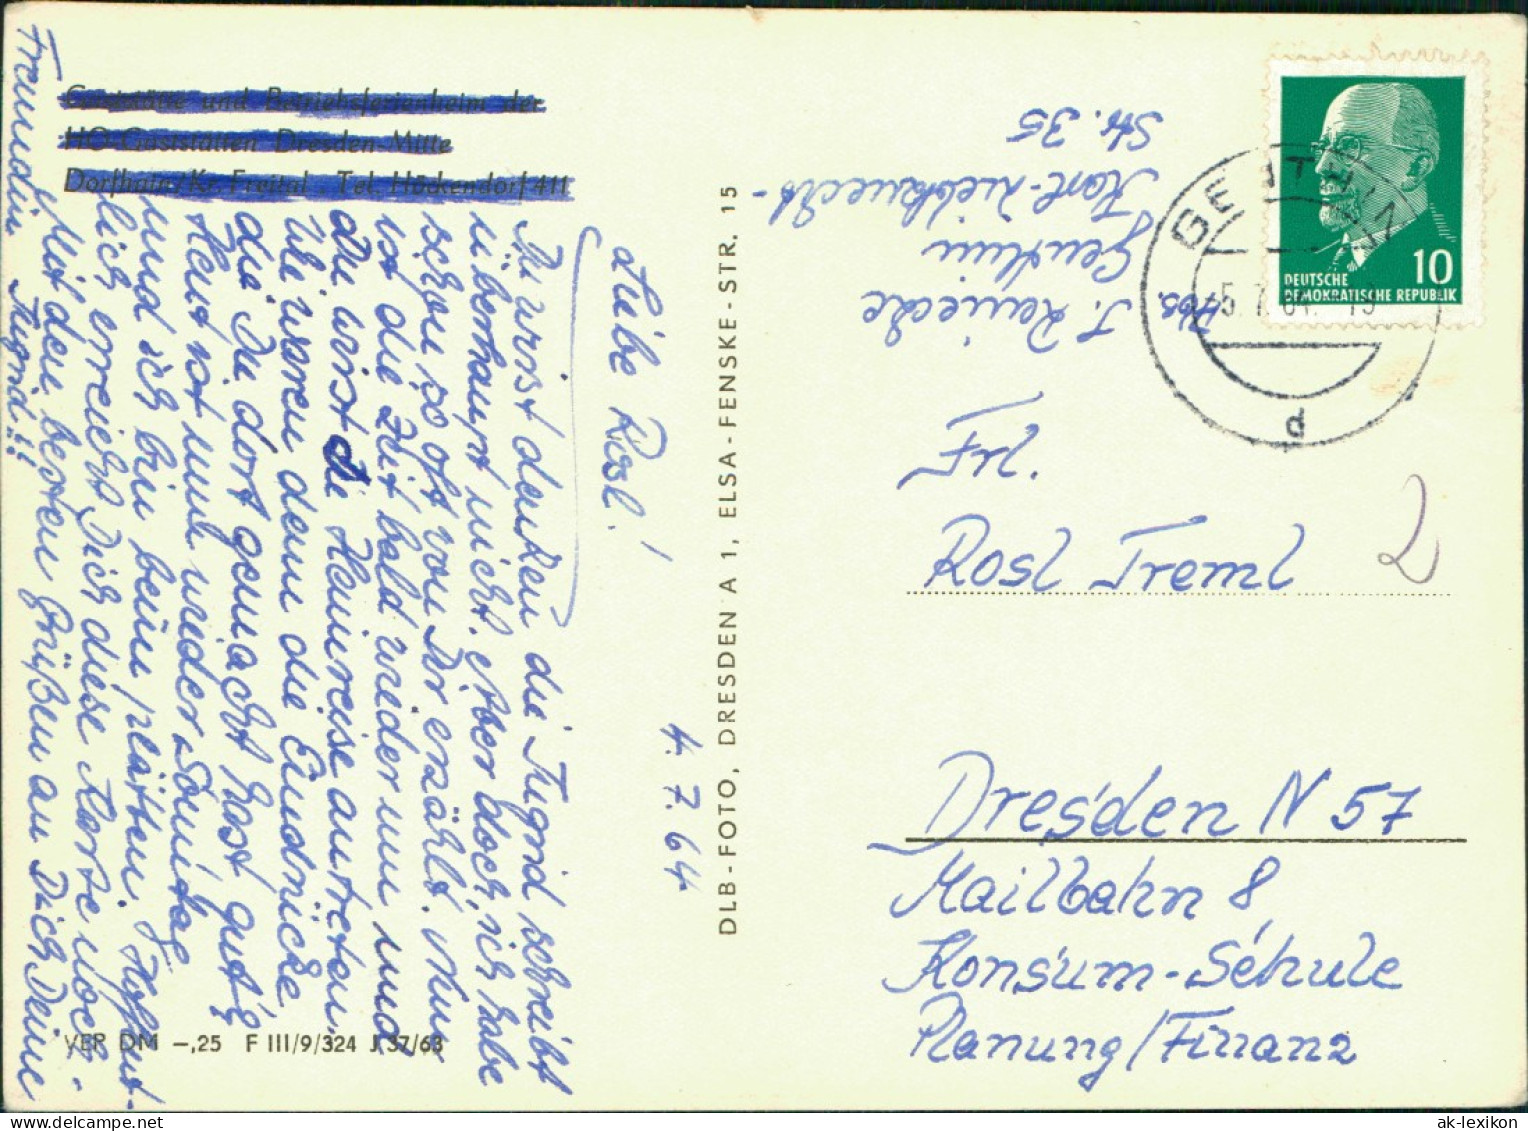 Gaststätte und Betriebsferienheim der
HO-Gaststätten Dresden-Mitte
Dorfhain/Kr. Freital - Tel. Höckendorf 411
4.7.64
Liebe Rosl!
Du wirst denken die Ingrid schreibt
überhaupt nicht. Aber doch, ich habe
schon so oft von Dir erzählt. Nun
ist die Zeit bald wieder um und
Du wirst die Heimreise antreten.
Wie waren denn die Eindrücke
die Du dort gemacht hast. gut?
Heut ist nun wieder Sonntag
und ich bin beim plätten. Hoffent-
lich erreicht Dich diese Karte noch.
Mit den besten Grüßen an Dich Deine
Freundin Ingrid!!
DLB-FOTO, DRESDEN A 1, ELSA-FENSKE-STR. 15
VEP DM -,25 F III/9/324 J 37/63
Abs.
Genthin
Karl-Liebknecht-
Str. 35
DEUTSCHE
DEMOKRATISCHE REPUBLIK
10
GENTHIN
d
Frl.
Rosl Treml
2
Dresden N 57
Mailbahn 8
Konsum-Schule
Planung/Finanz
ak-lexikon